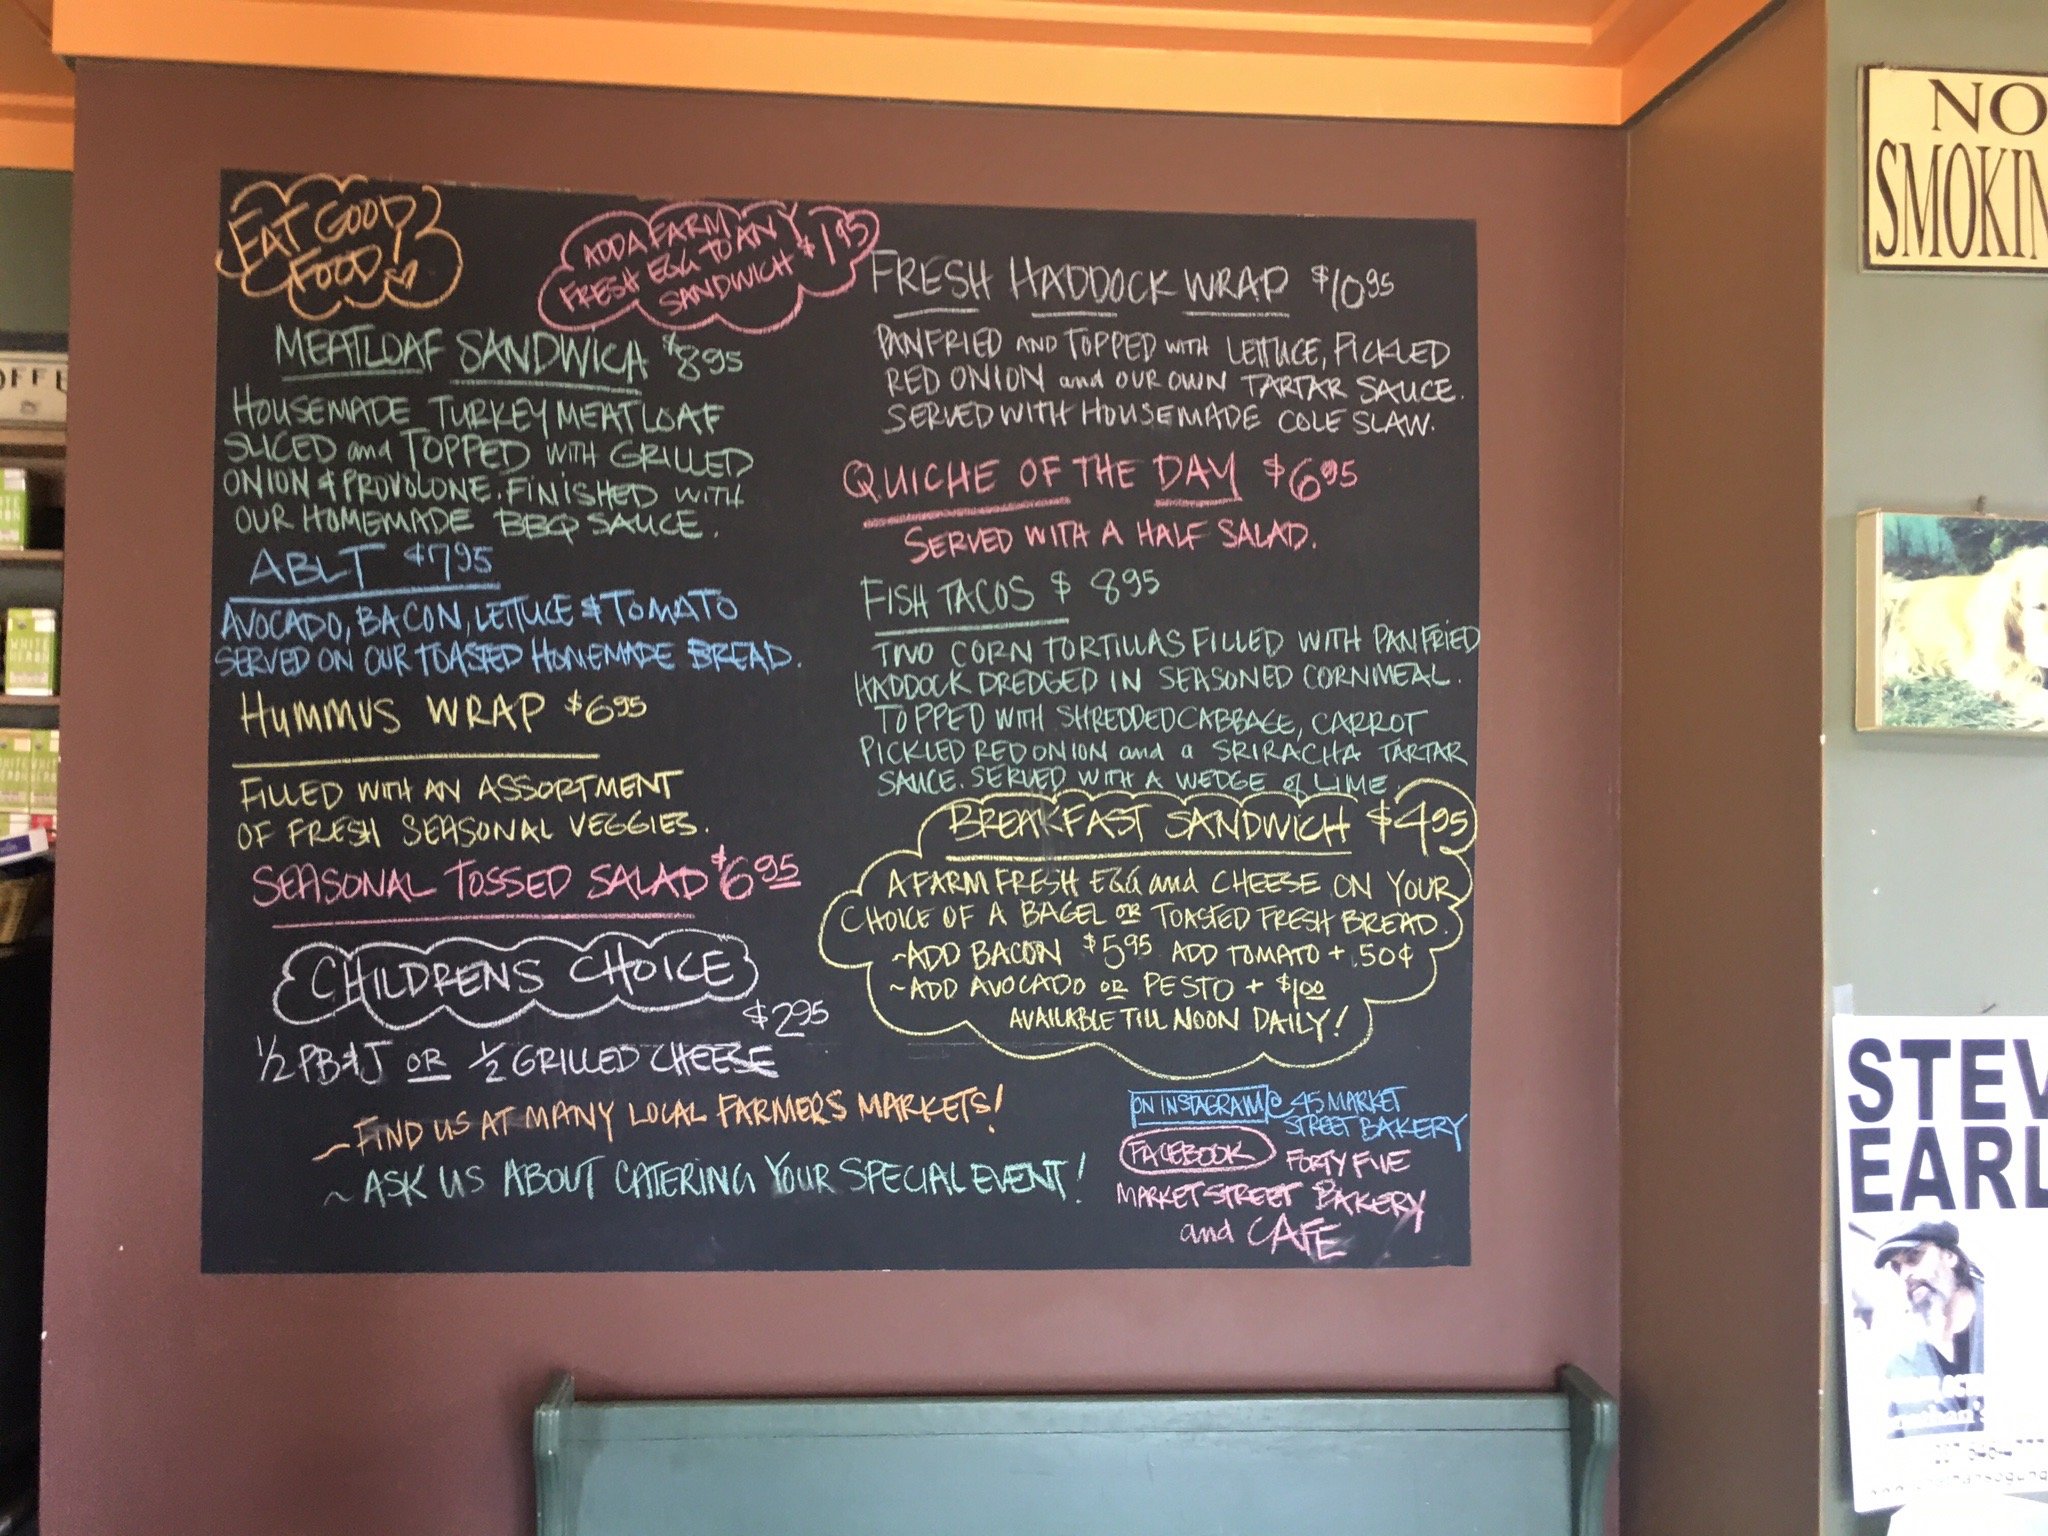 EAT GOOD
FOOD!
ADD A FARM
FRESH EGG TO ANY
SANDWICH $1.95
MEATLOAF SANDWICH $8.95
HOUSEMADE TURKEY MEATLOAF
SLICED and TOPPED WITH GRILLED
ONION & PROVOLONE. FINISHED WITH
OUR HOMEMADE BBQ SAUCE.
ABLT $7.95
AVOCADO, BACON, LETTUCE & TOMATO
SERVED ON OUR TOASTED HOMEMADE BREAD.
HUMMUS WRAP $6.95
FILLED WITH AN ASSORTMENT
OF FRESH SEASONAL VEGGIES.
SEASONAL TOSSED SALAD $6.95
CHILDRENS CHOICE
$2.95
1/2 PB&J OR 1/2 GRILLED CHEESE
~FIND US AT MANY LOCAL FARMERS MARKETS!
~ASK US ABOUT CATERING YOUR SPECIAL EVENT!
FRESH HADDOCK WRAP $10.95
PANFRIED AND TOPPED WITH LETTUCE, PICKLED
RED ONION and OUR OWN TARTAR SAUCE.
SERVED WITH HOUSEMADE COLE SLAW.
QUICHE OF THE DAY $6.95
SERVED WITH A HALF SALAD.
FISH TACOS $8.95
TWO CORN TORTILLAS FILLED WITH PANFRIED
HADDOCK DREDGED IN SEASONED CORNMEAL.
TOPPED WITH SHREDDED CABBAGE, CARROT
PICKLED RED ONION and a SRIRACHA TARTAR
SAUCE. SERVED WITH A WEDGE of LIME.
BREAKFAST SANDWICH $4.95
A FARM FRESH EGG and CHEESE ON YOUR
CHOICE OF A BAGEL OR TOASTED FRESH BREAD.
~ADD BACON $5.95 ADD TOMATO + .50¢
~ADD AVOCADO OR PESTO + $1.00
AVAILABLE TILL NOON DAILY!
ON INSTAGRAM @ 45 MARKET
STREET BAKERY
FACEBOOK FORTY FIVE
MARKET STREET BAKERY
and CAFE
NO
SMOKIN
STEV
EARL
WHITE